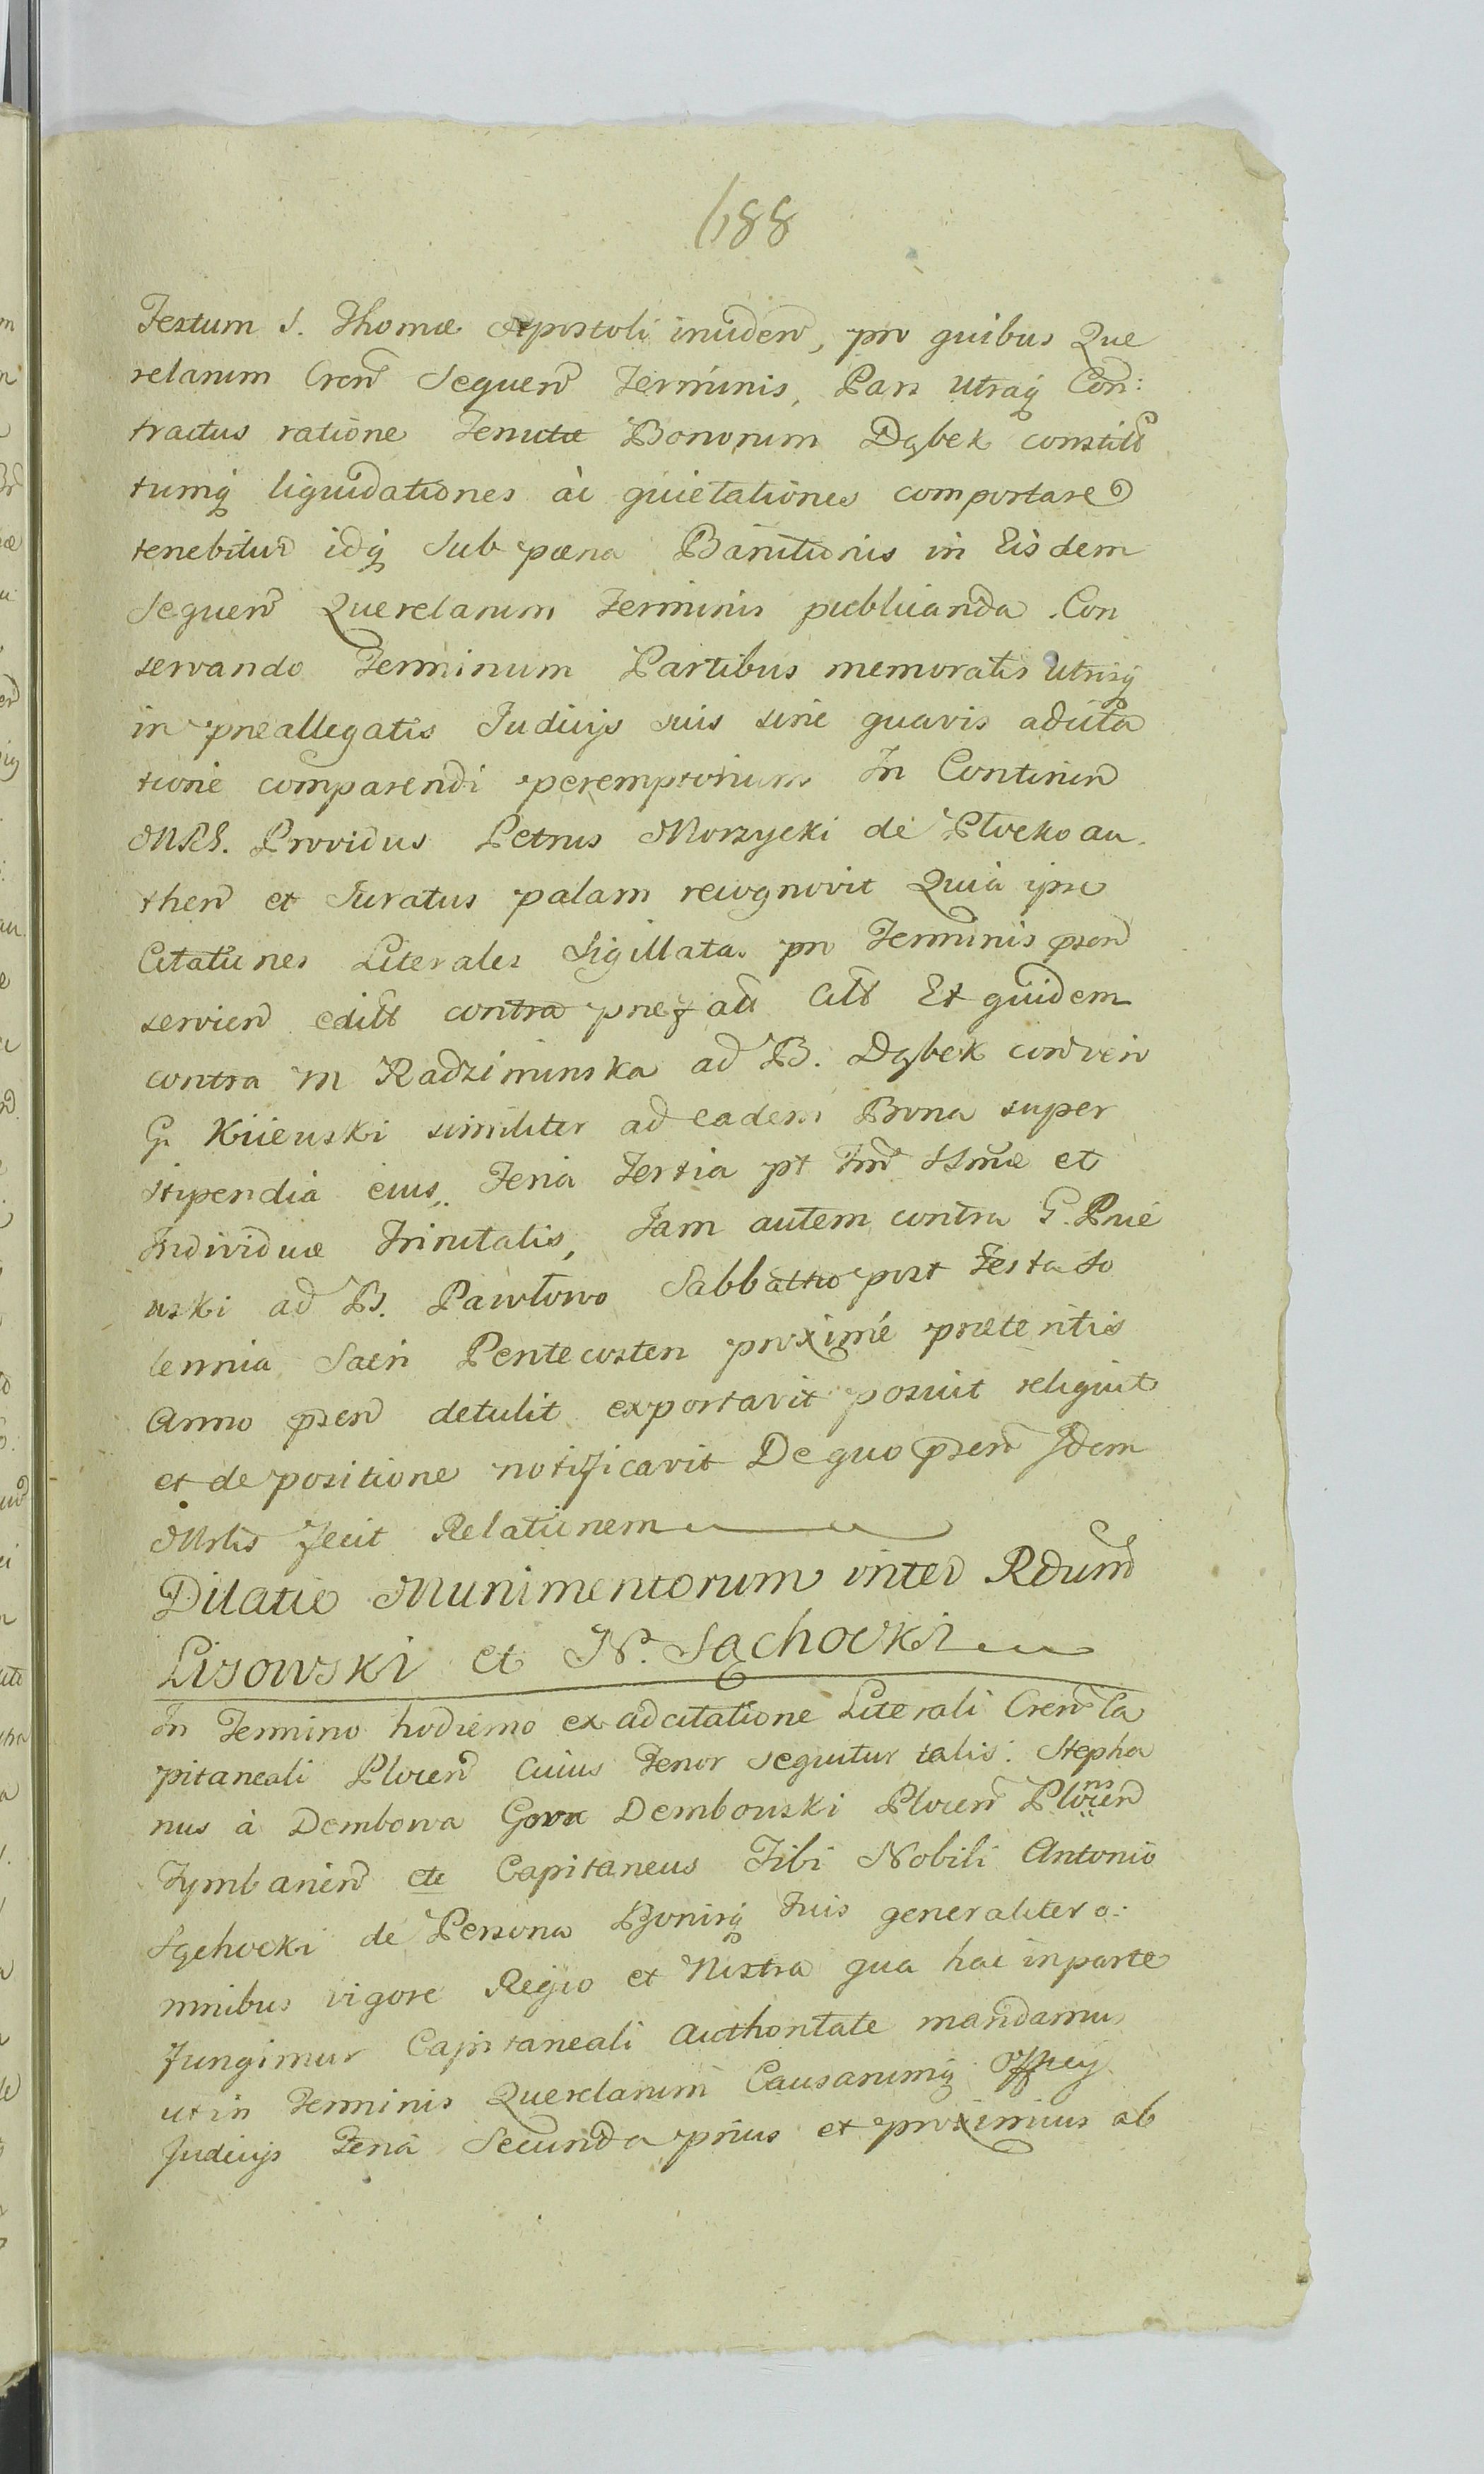 188
Festum S. Thomæ Apostoli inciden, pro quibus Que
relarum Cren Sequen Terminis, Pars utraq Con:
tractus ratione Tenutæ Bonorum Dąbek constitt
tumq liquidationes ac quietationes comportare
tenebitur idq Sub pæna Banitionis in Eisdem
Sequen Querelarum Terminis publicanda. Con
servando Terminum Partibus memoratis utrisq
in præallegatis Judicijs suis sine quavis adcita
tione comparendi peremptorium In Continen
MRG. Providus Petrus Morzycki de Płocko au.
then et Juratus palam recognovit Quia ipse
Citationes Literales Sigillatas pro Terminis pæn
servien editt contra præfatt Citt Et quidem
contra M Radziminska ad B. Dąbek conven
G. Kiiewski similiter ad eadem Bona super
stipendia eius, Feria Tertia pt Fm SSmæ et
Individuæ Trinitatis, Jam autem contra G. Prie
wski ad B. Pawłowo Sabbatho post Festa So
lennia Sacri Pentecosten proximé præteritis
Anno præsen detulit exportavit posuit reliquit
et de positione notificavit De quo præsen Idem
Mrlis fecit Relationem
Dilatio Munimentorum inter Rdum
Lisowski et N. Sąchocki
In Termino hodierno ex adcitatione Literali Cren Ca
pitaneali Plocen Cuius Tenor sequitur talis: Stepha
nus à Dembowa Gora Dembowski Plocen Plonen
Tymbarien etc Capitaneus Tibi Nobili Antonio
Sąchocki de Persona Bonisq Tuis generaliter o:
mnibus vigore Regio et Nostra qua hac inparte
fungimur Capitaneali Authoritate mandamus
ut in Terminis Querelarum Causarumq Officij
Judicijs Feriâ Secunda prius et proximius ab